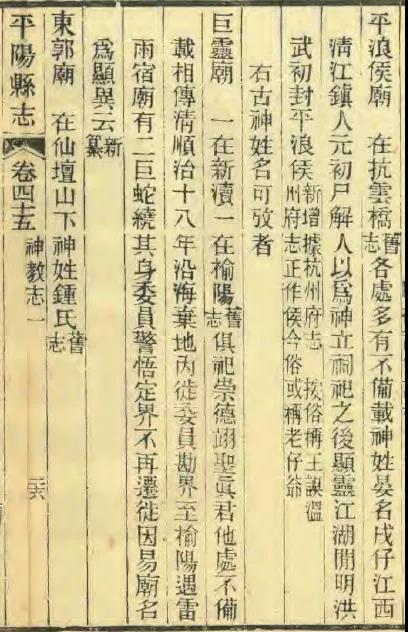 平浪侯廟　在抗雲橋舊志各處多有不備載神姓晏名戌仔江西
清江鎮人元初尸解人以爲神立祠祀之後顯靈江湖閒明洪
武初封平浪侯新增據杭州府志　按俗稱王誤溫
州府志正作侯今俗或稱老仔爺
右古神姓名可攷者
巨靈廟　一在新瀆一在榆陽舊志俱祀崇德翊聖眞君他處不備
載相傳清順治十八年沿海棄地內徙委員勘界至榆陽遇雷
雨宿廟有二巨蛇繞其身委員警悟定界不再遷徙因易廟名
爲顯異云新纂
東郭廟　在仙壇山下神姓鍾氏舊志
平陽縣志　卷四十五　神教志一　二六